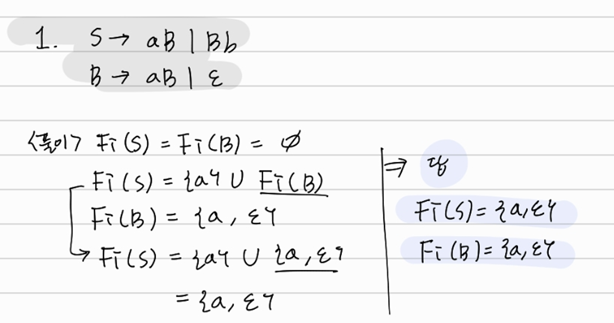 1. S → aB | Bb
B → aB | ε
<풀이> Fi(S) = Fi(B) = ∅
Fi(S) = {a} ∪ Fi(B)
Fi(B) = {a, ε}
→ Fi(S) = {a} ∪ {a, ε}
= {a, ε}
⇒ 답
Fi(S) = {a, ε}
Fi(B) = {a, ε}